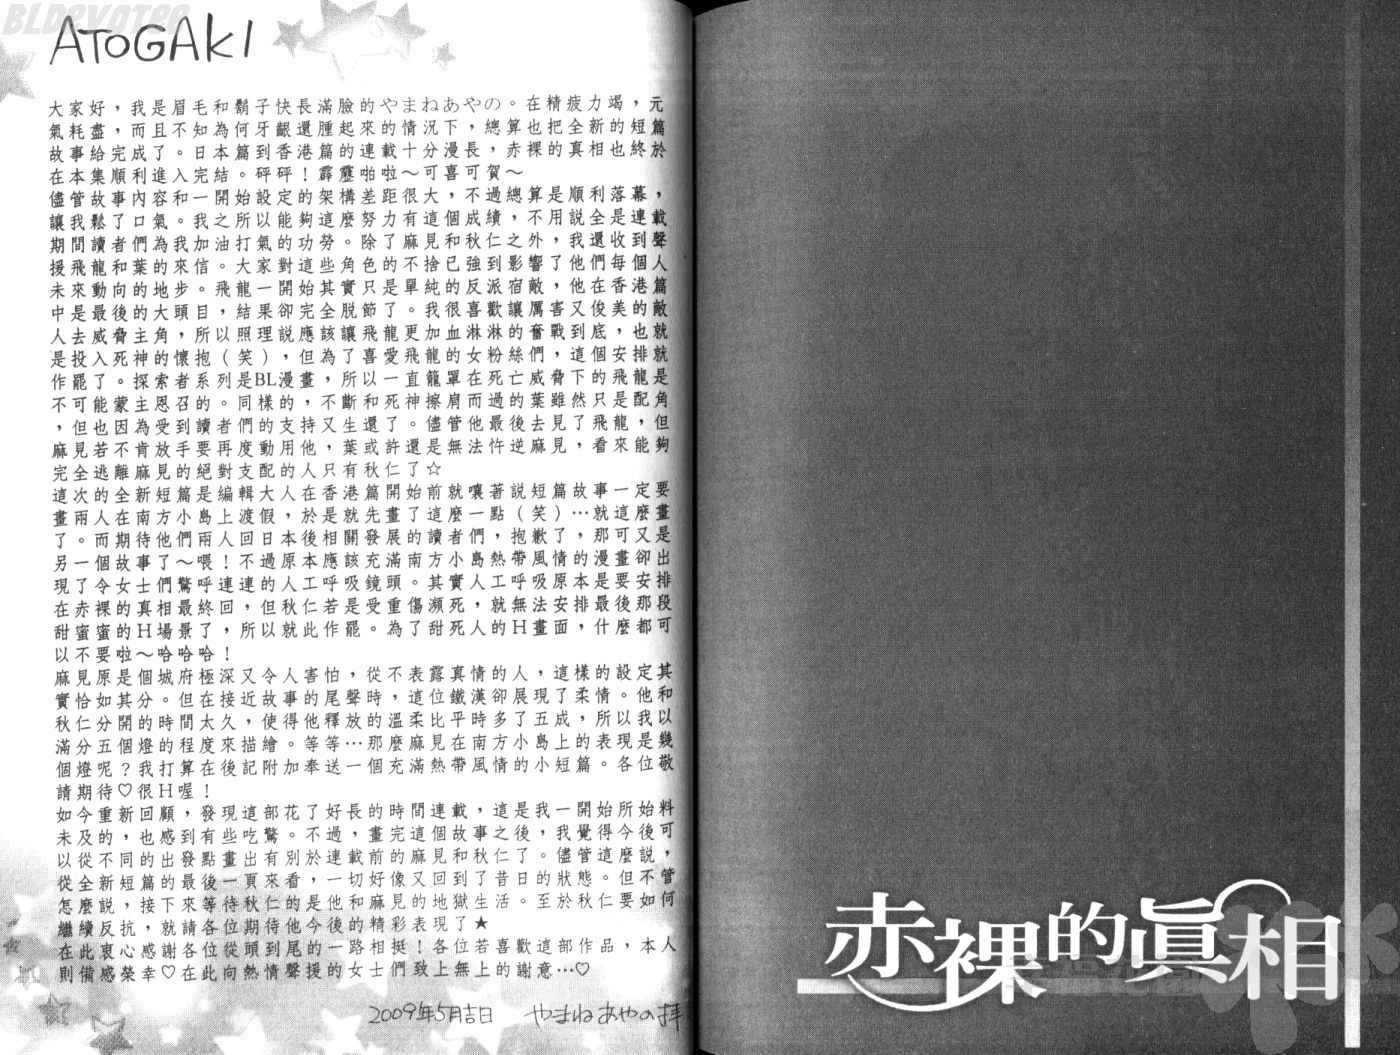 BLDevotee
ATOGAKI
大家好，我是眉毛和鬍子快長滿臉的やまねあやの。在精疲力竭，元
氣耗盡，而且不知為何牙齦還腫起來的情況下，總算也把全新的短篇
故事給完成了。日本篇到香港篇的連載十分漫長，赤裸的真相也終於
在本集順利進入完結。砰砰！霹靂啪啦～可喜可賀～
儘管故事內容和一開始設定的架構差距很大，不過總算是順利落幕，
讓我鬆了口氣。我之所以能夠這麼努力有這個成績，不用說全是連載
期間讀者們為我加油打氣的功勞。除了麻見和秋仁之外，我還收到聲
援飛龍和葉的來信。大家對這些角色的不捨已強到影響了他們每個人
未來動向的地步。飛龍一開始其實只是單純的反派宿敵，他在香港篇
中是最後的大頭目，結果卻完全脫節了。我很喜歡讓厲害又俊美的敵
人去威脅主角，所以照理說應該讓飛龍更加血淋淋的奮戰到底，也就
是投入死神的懷抱（笑），但為了喜愛飛龍的女粉絲們，這個安排就
作罷了。探索者系列是BL漫畫，所以一直籠罩在死亡威脅下的飛龍是
不可能蒙主恩召的。同樣的，不斷和死神擦肩而過的葉雖然只是配角
，但也因為受到讀者們的支持又生還了。儘管他最後去見了飛龍，但
麻見若不肯放手要再度動用他，葉或許還是無法忤逆麻見，看來能夠
完全逃離麻見的絕對支配的人只有秋仁了☆
這次的全新短篇是編輯大人在香港篇開始前就嚷著說短篇故事一定要
畫兩人在南方小島上渡假，於是就先畫了這麼一點（笑）…就這麼畫
了。而期待他們兩人回日本後相關發展的讀者們，抱歉了，那可又是
另一個故事了～喂！不過原本應該充滿南方小島熱帶風情的漫畫卻出
現了令女士們驚呼連連的人工呼吸鏡頭。其實人工呼吸原本是要安排
在赤裸的真相最終回，但秋仁若是受重傷瀕死，就無法安排最後那段
甜蜜蜜的H場景了，所以就此作罷。為了甜死人的H畫面，什麼都可
以不要啦～哈哈哈！
麻見原是個城府極深又令人害怕，從不表露真情的人，這樣的設定其
實恰如其分。但在接近故事的尾聲時，這位鐵漢卻展現了柔情。他和
秋仁分開的時間太久，使得他釋放的溫柔比平時多了五成，所以我以
滿分五個燈的程度來描繪。等等…那麼麻見在南方小島上的表現是幾
個燈呢？我打算在後記附加奉送一個充滿熱帶風情的小短篇。各位敬
請期待♡很H喔！
如今重新回顧，發現這部花了好長的時間連載，這是我一開始所始料
未及的，也感到有些吃驚。不過，畫完這個故事之後，我覺得今後可
以從不同的出發點畫出有別於連載前的麻見和秋仁了。儘管這麼說，
從全新短篇的最後一頁來看，一切好像又回到了昔日的狀態。但不管
怎麼說，接下來等待秋仁的是他和麻見的地獄生活。至於秋仁要如何
繼續反抗，就請各位期待他今後的精彩表現了★
在此衷心感謝各位從頭到尾的一路相挺！各位若喜歡這部作品，本人
則備感榮幸♡在此向熱情聲援的女士們致上無上的謝意…♡
2009年5月吉日 やまねあやの拝
赤裸的真相